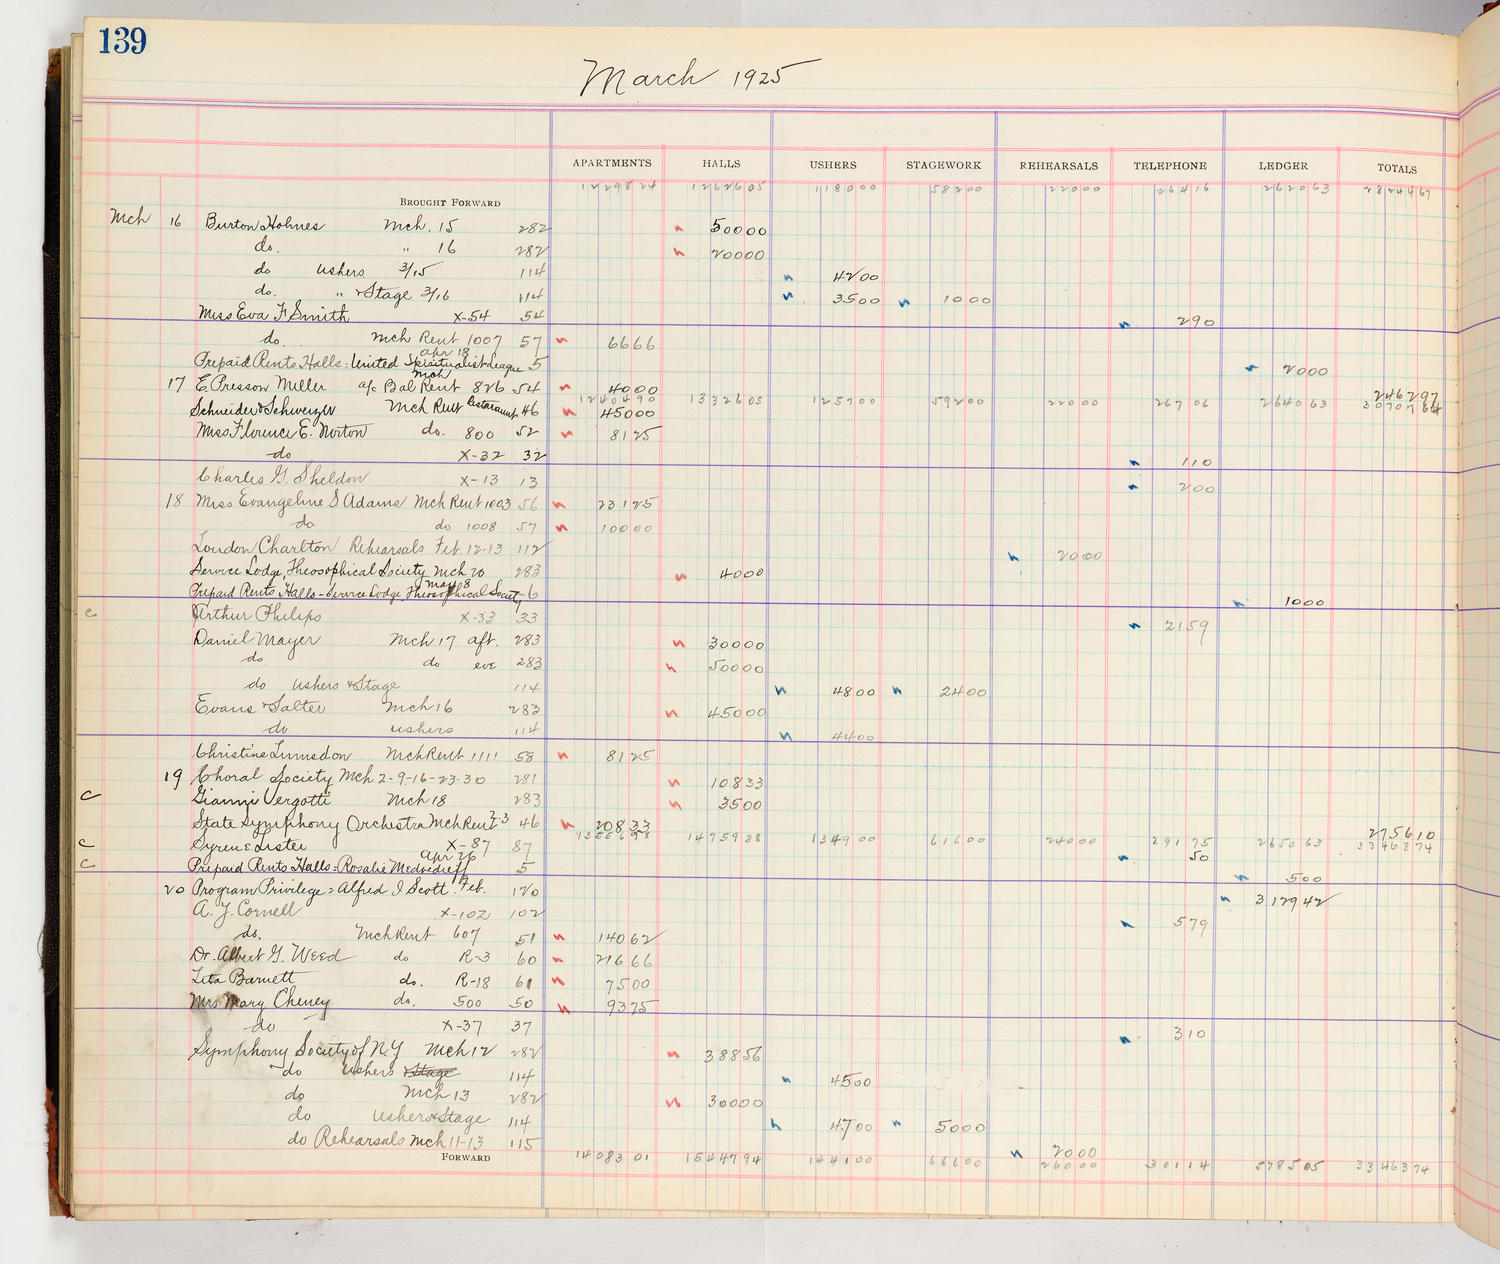 139
March 1925
APARTMENTS HALLS USHERS STAGEWORK REHEARSALS TELEPHONE LEDGER TOTALS
BROUGHT FORWARD 1229824 1262605 118000 58200 22000 26416 262063 2824467
Mch 16 Burton Holmes Mch. 15 282 50000
do. " 16 282 20000
do ushers 3/15 114 4200
do. " & Stage 3/16 114 3500 1000
Miss Eva F Smith X-54 54 290
do. Mch Rent 1007 57 6666
Prepaid Rents Halls = United Spiritualist League apr 18 5 2000
17 E. Presson Miller a/c Bal Rent Mch 826 54 4000 246297
1240490 1332605 125700 59200 22000 26706 264063 3070764
Schneider & Schweizer Mch Rent restaurant 46 45000
Miss Florence E. Norton do. 800 52 8125
do X-32 32 110
Charles G. Sheldon X-13 13 200
18 Miss Evangeline S Adams Mch Rent 1003 56 23125
do do 1008 57 10000
Loudon Charlton Rehearsals Feb. 12-13 112 2000
Service Lodge, Theosophical Society Mch 20 283 4000
Prepaid Rents Halls - Service Lodge, Theosophical Society may 8 6 1000
c Arthur Philips X-33 33 2159
Daniel Mayer Mch 17 aft. 283 30000
do. do eve 283 50000
do ushers & Stage 114 4800 2400
Evans & Salter Mch 16 283 45000
do ushers 114 4400
Christine Lumsdon Mch Rent 1111 58 8125
19 Choral Society Mch 2-9-16-23-30 281 10833
C Gianni Vergotti Mch 18 283 3500
State Symphony Orchestra Mch Rent 2-3 46 20833 275610
1355698 1475938 134900 61600 24000 29175 265063 3346374
c Syrene Lister X-87 87 50
C Prepaid Rents Halls = Rosalie Medvedieff apr 26 5 500
20 Program Privilege = Alfred I Scott. Feb. 120 312942
A. J. Cornell X-102 102 579
do. Mch Rent 607 51 14062
Dr. Albert G. Weed do R-3 60 21666
Lita Barnett do. R-18 61 7500
Mrs Mary Cheney do. 500 50 9375
do X-37 37 310
Symphony Society of N.Y Mch 12 282 38856
do Ushers & Stage 114 4500
do Mch 13 282 30000
do Ushers & Stage 114 4700 5000
do Rehearsals Mch 11-13 115 2000
FORWARD 1408301 1544794 144100 66600 26000 30114 578505 3346374